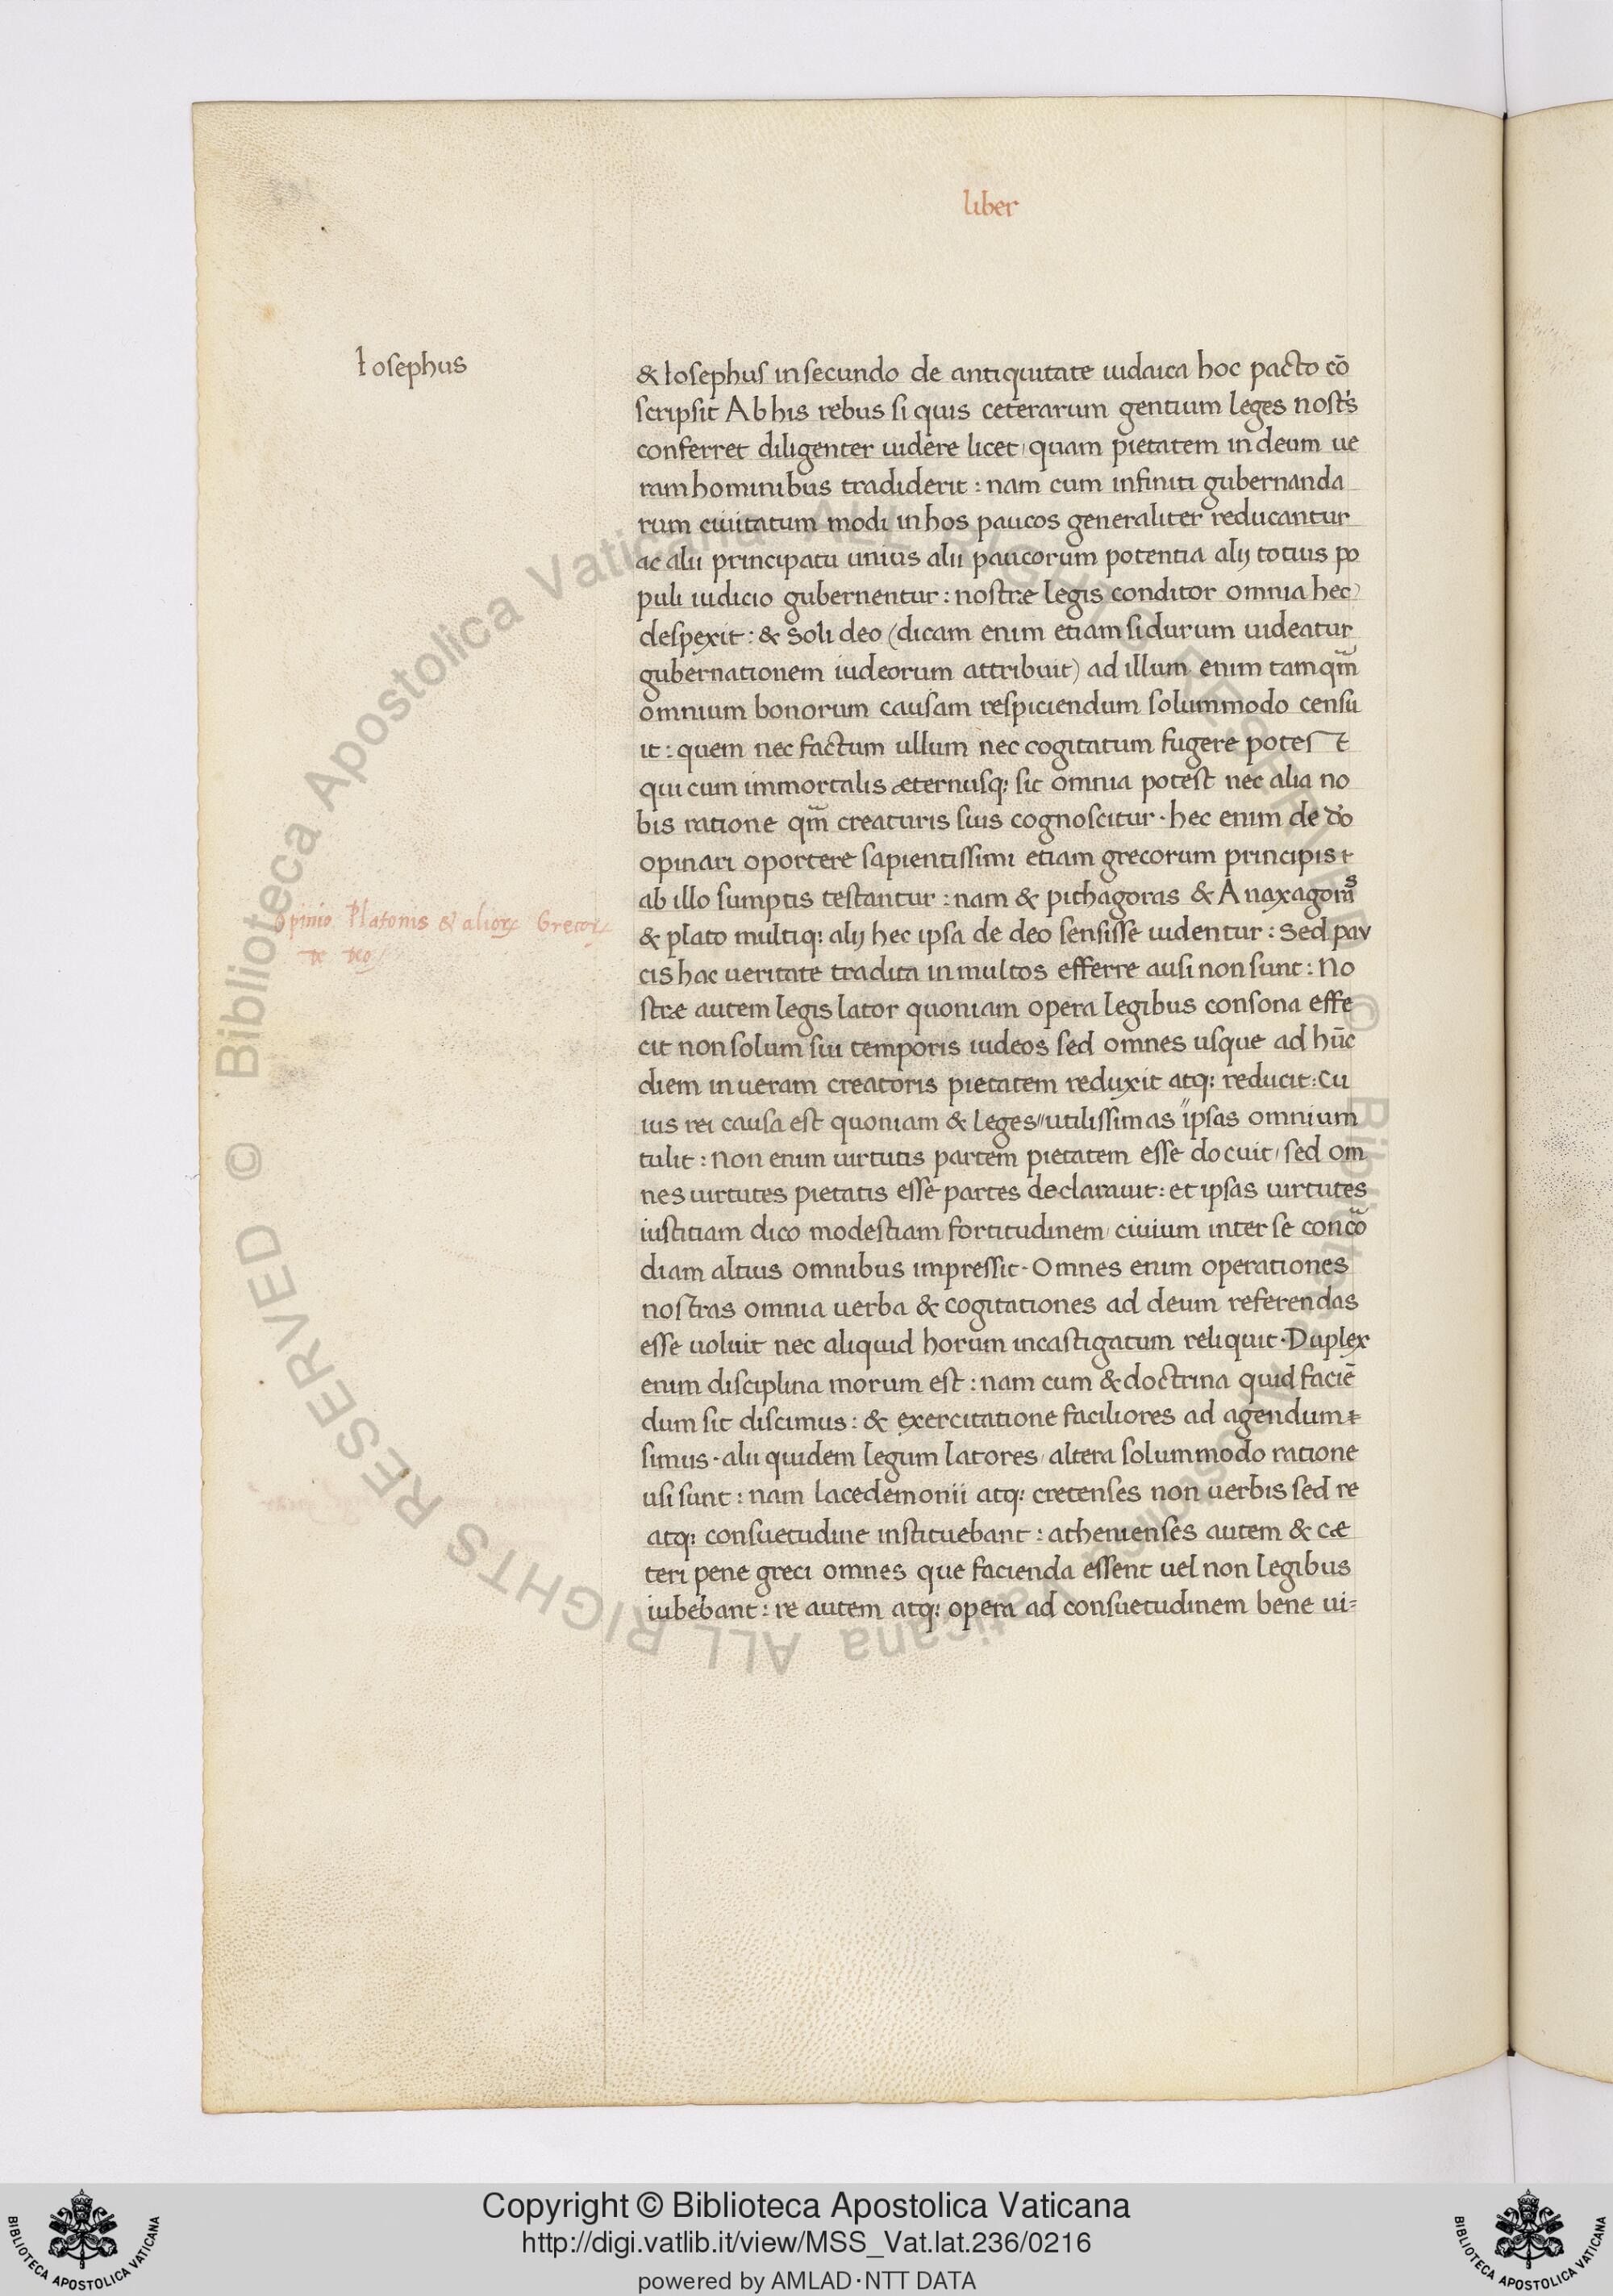 liber
Iosephus
& Iosephus in secundo de antiquitate iudaica hoc pacto cō
scripsit Ab his rebus si quis ceterarum gentium leges nost's
conferret diligenter uidere licet, quam pietatem in deum ue
ram hominibus tradiderit: nam cum infiniti gubernanda
rum ciuitatum modi in hos paucos generaliter reducantur
ac alii principatu unius alii paucorum potentia alij totius po
puli iudicio gubernentur: nostræ legis conditor omnia hec
despexit: & soli deo (dicam enim etiam si durum uideatur
gubernationem iudeorum attribuit) ad illum enim tamqm̄
omnium bonorum causam respiciendum solummodo censu
it: quem nec factum ullum nec cogitatum fugere potest
qui cum immortalis æternusq; sic omnia potest nec alia no
bis ratione qm̄ creaturis suis cognoscitur. hec enim de do
opinari oportere sapientissimi etiam grecorum principis
ab illo sumptis testantur: nam & pithagoras & Anaxagoras
& plato multiq; alij hec ipsa de deo sensisse uidentur: Sed pau
cis hac ueritate tradita in multos efferre ausi non sunt: No
stræ autem legis lator quoniam opera legibus consona effe
cit non solum sui temporis iudeos sed omnes usque ad hūc
diem in ueram creatoris pietatem reduxit atq; reducit: Cu
ius rei causa est quoniam & leges "utilissimas "ipsas omnium
tulit: Non enim uirtutis partem pietatem esse docuit, sed om
nes uirtutes pietatis esse partes declarauit: et ipsas uirtutes
iustitiam dico modestiam fortitudinem, ciuium inter se conco
diam altius omnibus impressit. Omnes enim operationes
nostras omnia uerba & cogitationes ad deum referendas
esse uoluit nec aliquid horum incastigatum reliquit. Duplex
enim disciplina morum est: nam cum & doctrina quid faciē
dum sit discimus: & exercitatione faciliores ad agendum
simus. alii quidem legum latores, altera solummodo ratione
usi sunt: nam lacedemonii atq; cretenses non uerbis sed re
atq; consuetudine instituebant: athenienses autem & cæ
teri pene greci omnes que facienda essent uel non legibus
iubebant: re autem atq; opera ad consuetudinem bene ui=
Opinio Platonis & alioꝝ Grecoꝝ
de deo
© Biblioteca Apostolica Vaticana ALL RIGHTS RESERVED © Biblioteca Apostolica Vaticana ALL RIGHTS RESERVED
Copyright © Biblioteca Apostolica Vaticana
http://digi.vatlib.it/view/MSS_Vat.lat.236/0216
powered by AMLAD·NTT DATA
BIBLIOTECA APOSTOLICA VATICANA
BIBLIOTECA APOSTOLICA VATICANA